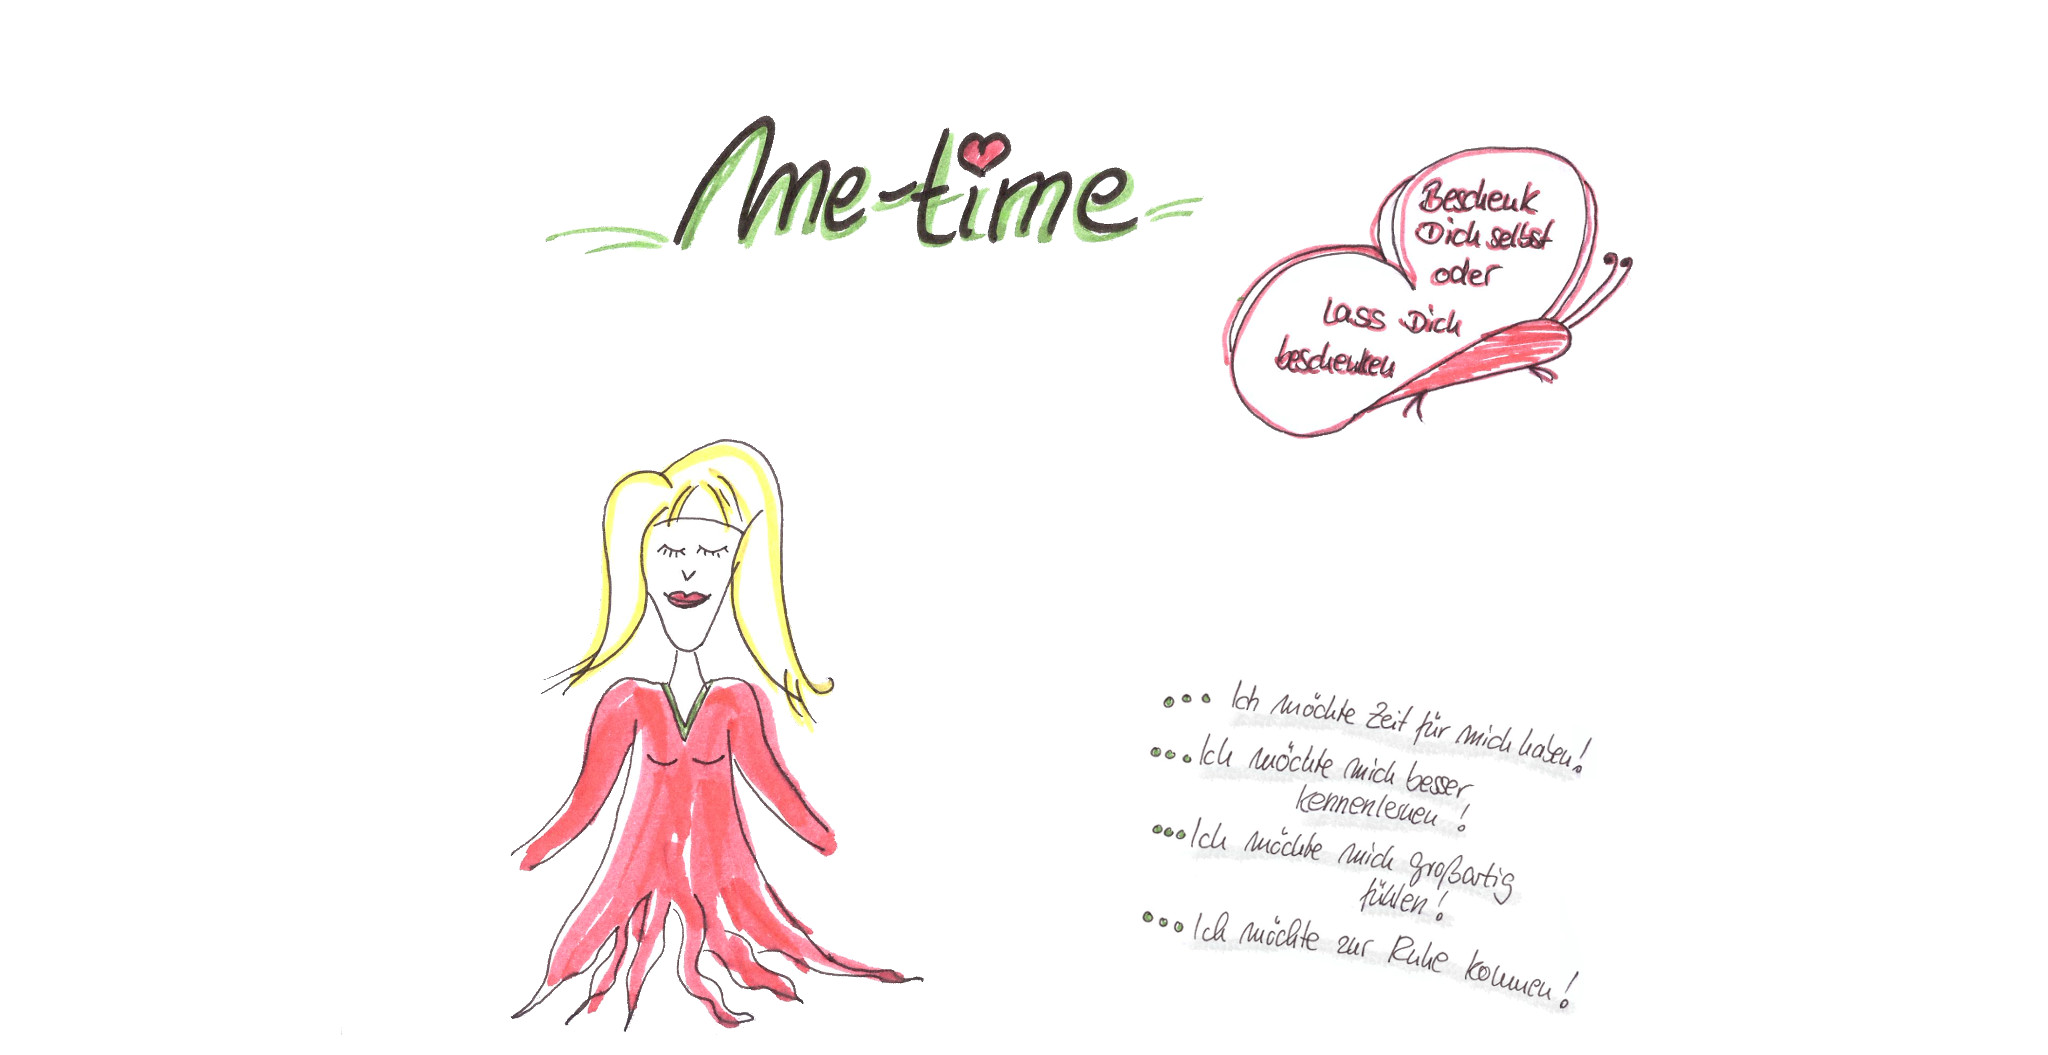 Me-time
Beschenk
Dich selbst
oder
Lass Dich
beschenken
... Ich möchte Zeit für mich haben!
... Ich möchte mich besser
kennenlernen!
... Ich möchte mich großartig
fühlen!
... Ich möchte zur Ruhe kommen!